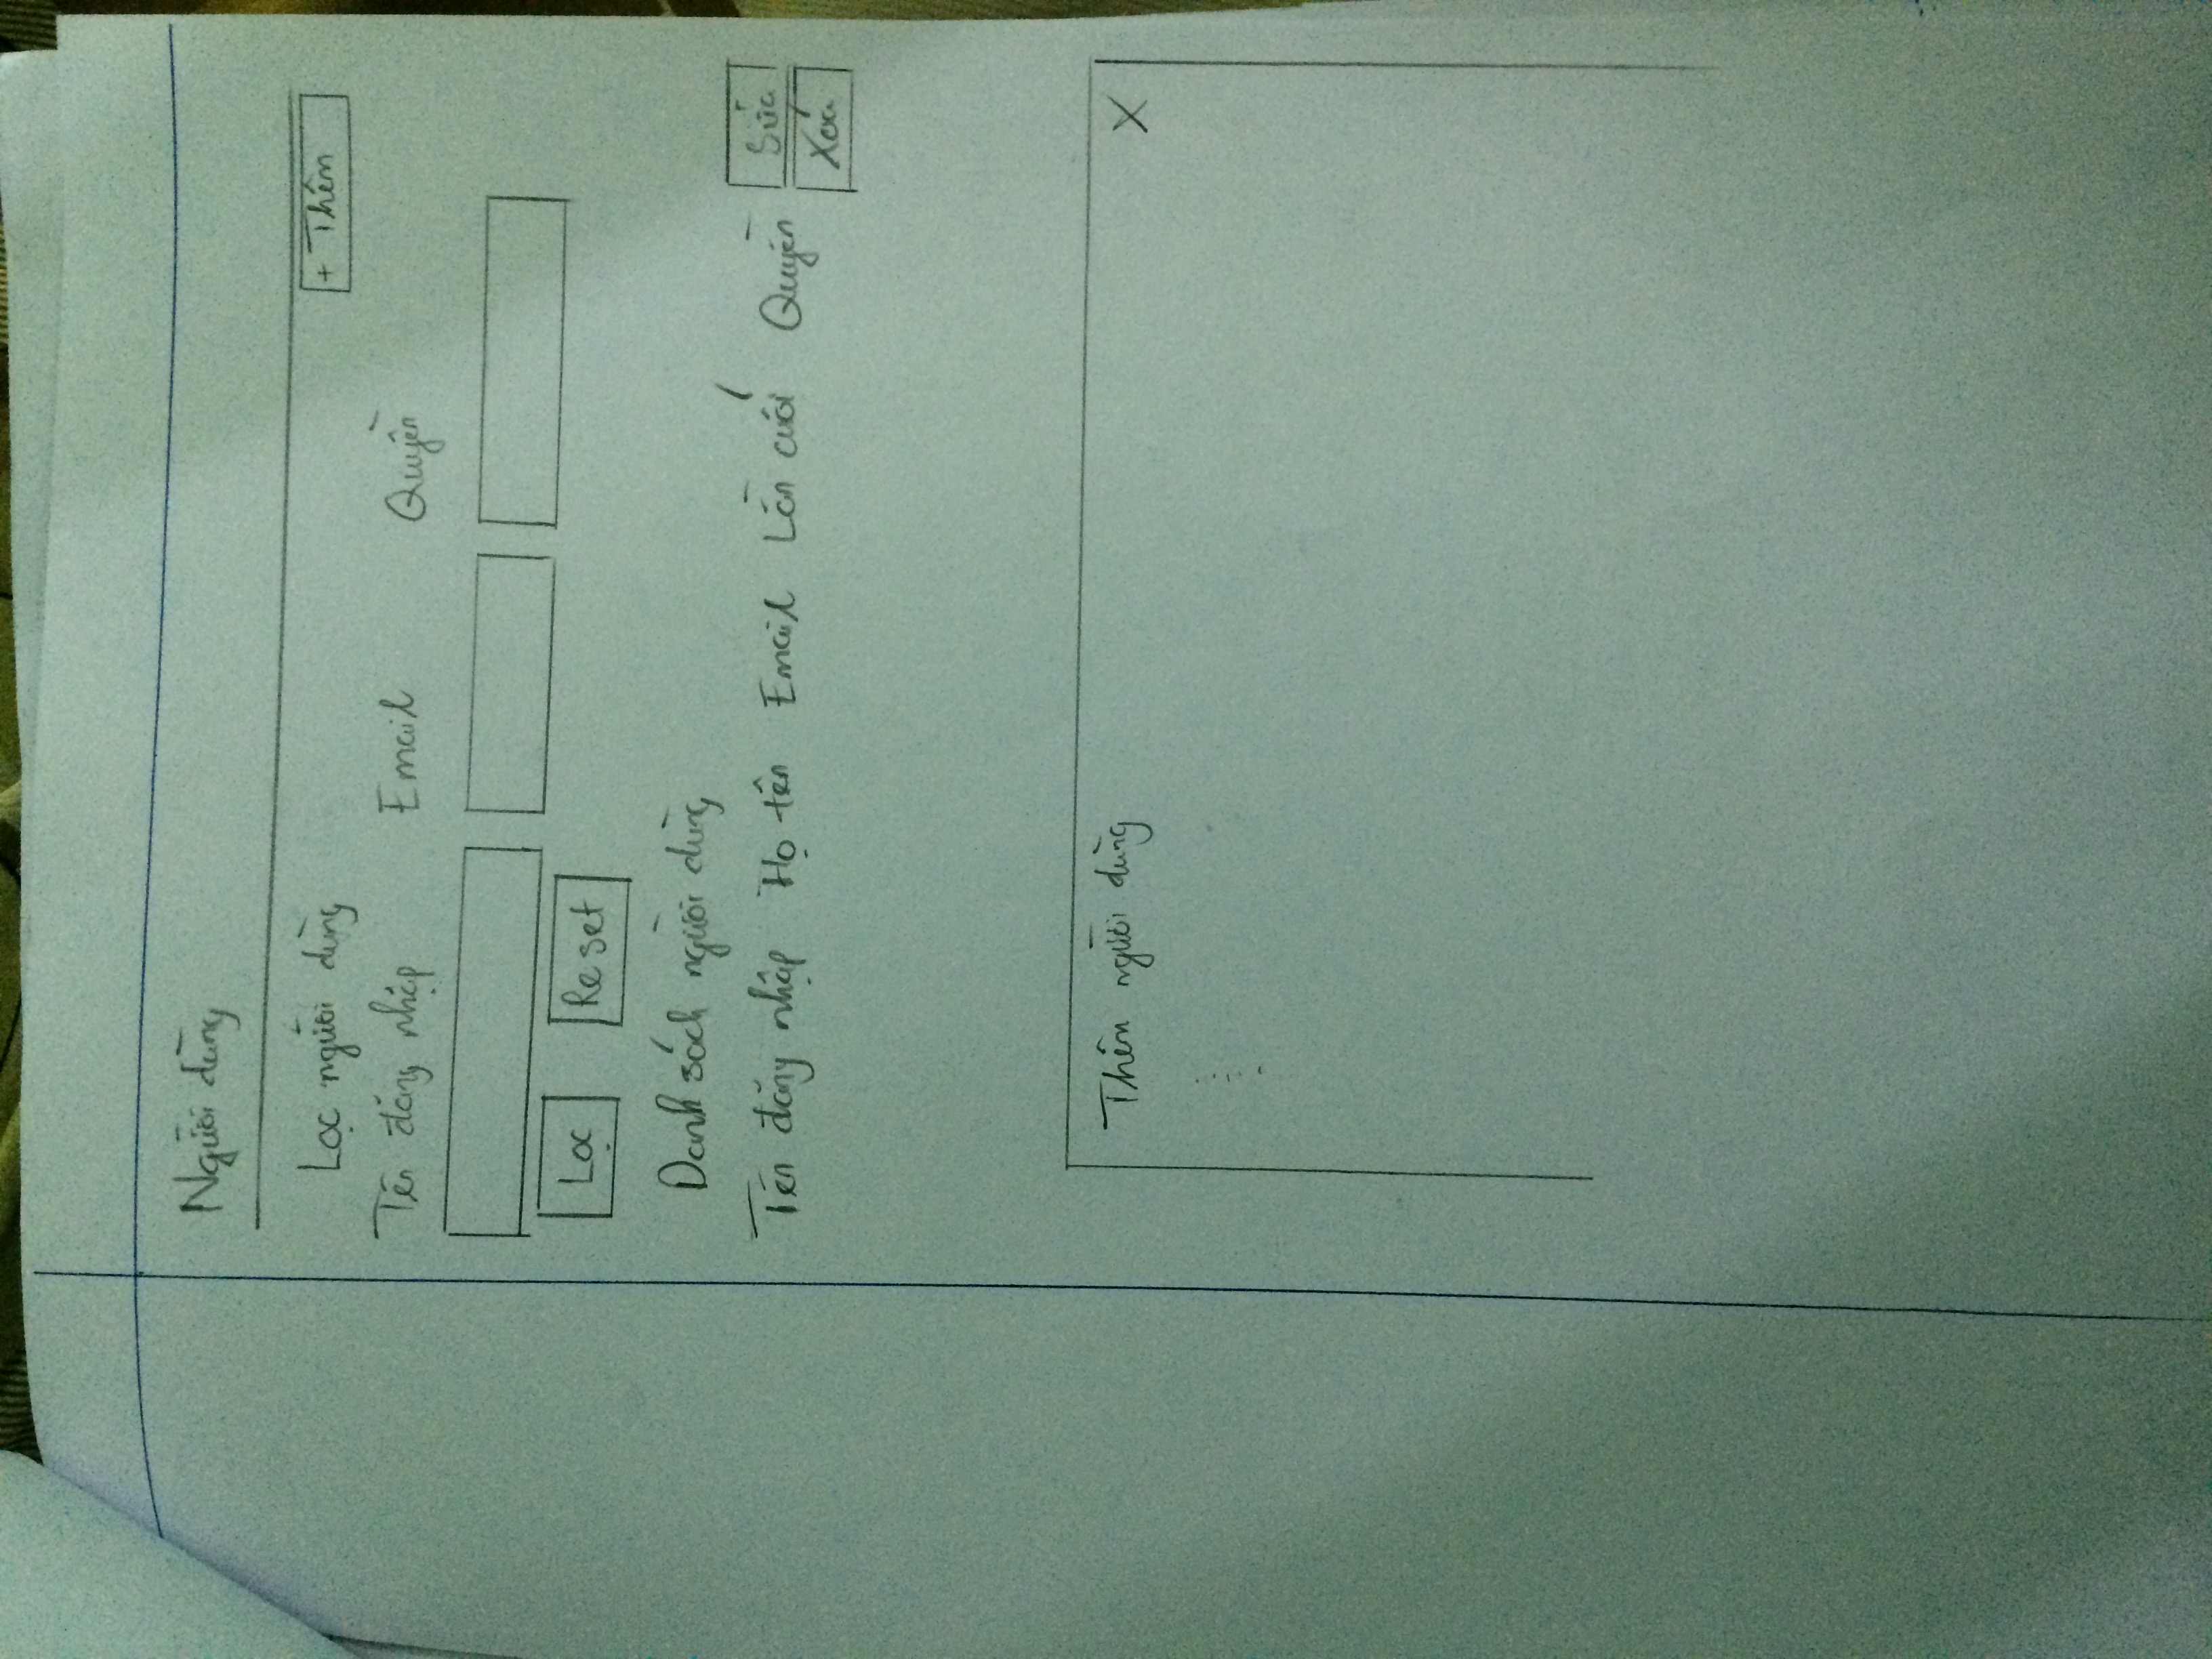 Người dùng
Lọc người dùng
+ Thêm
Tên đăng nhập Email Quyền
Lọc Reset
Danh sách người dùng
Tên đăng nhập Họ tên Email Lần cuối Quyền Sửa
Xoá
Thêm người dùng X